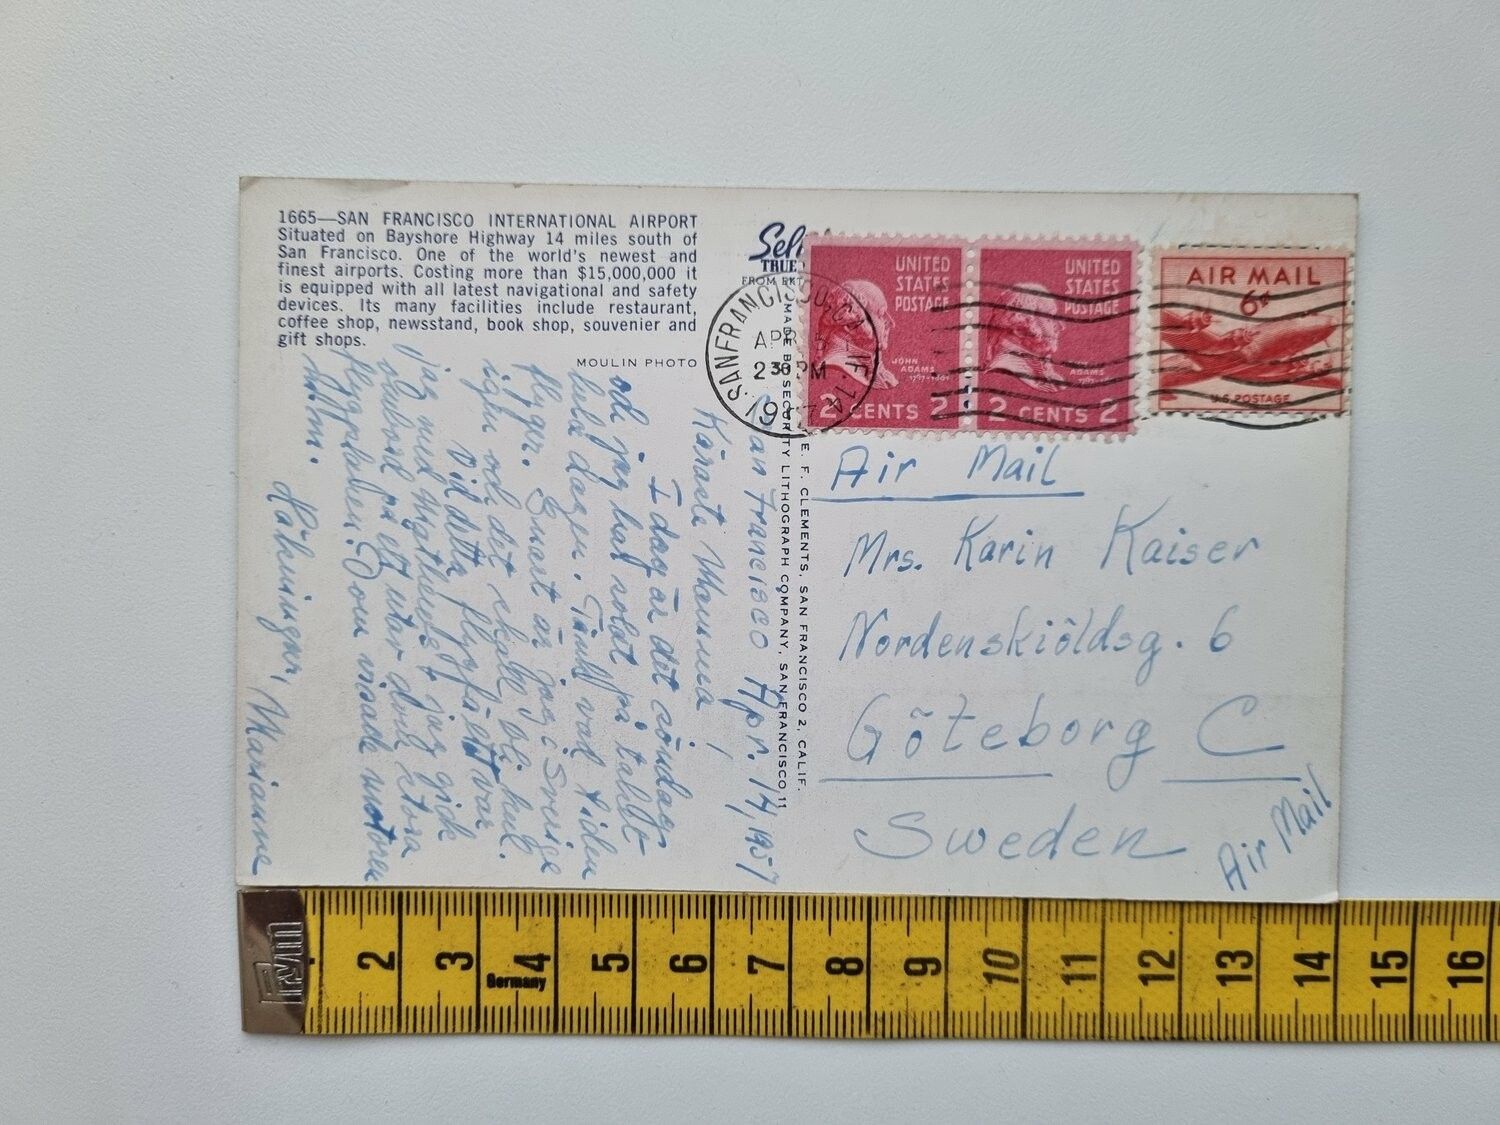 1665—SAN FRANCISCO INTERNATIONAL AIRPORT
Situated on Bayshore Highway 14 miles south of
San Francisco. One of the world's newest and
finest airports. Costing more than $15,000,000 it
is equipped with all latest navigational and safety
devices. Its many facilities include restaurant,
coffee shop, newsstand, book shop, souvenier and
gift shops.
MOULIN PHOTO
San Francisco Apr. 14, 1957
Käraste Mamma!
I dag är det söndag
och jag har solat på taket
hela dagen. Tänk vad tiden
flyger. Snart är jag i Sverige
igen och det skall bli kul.
Vid detta flygfält var
jag med Mathews + jag gick
ombord på ett utav dom stora
flygplanen. Dom visade motoren
Kramar, Marianne
TRUE
FROM EKT
MADE BY SECURITY LITHOGRAPH COMPANY, SAN FRANCISCO 11
E. F. CLEMENTS, SAN FRANCISCO 2, CALIF.
SAN FRANCISCO, CALIF. 14
APR 15
2 30 PM
1957
UNITED
STATES
POSTAGE
JOHN
ADAMS
1797-1801
2 CENTS 2
UNITED
STATES
POSTAGE
ADAMS
2 CENTS 2
AIR MAIL
6¢
U.S. POSTAGE
Air Mail
Mrs. Karin Kaiser
Nordenskiöldsg. 6
Göteborg C
Sweden
Air Mail
2 3 4 5 6 7 8 9 10 11 12 13 14 15 16
Germany